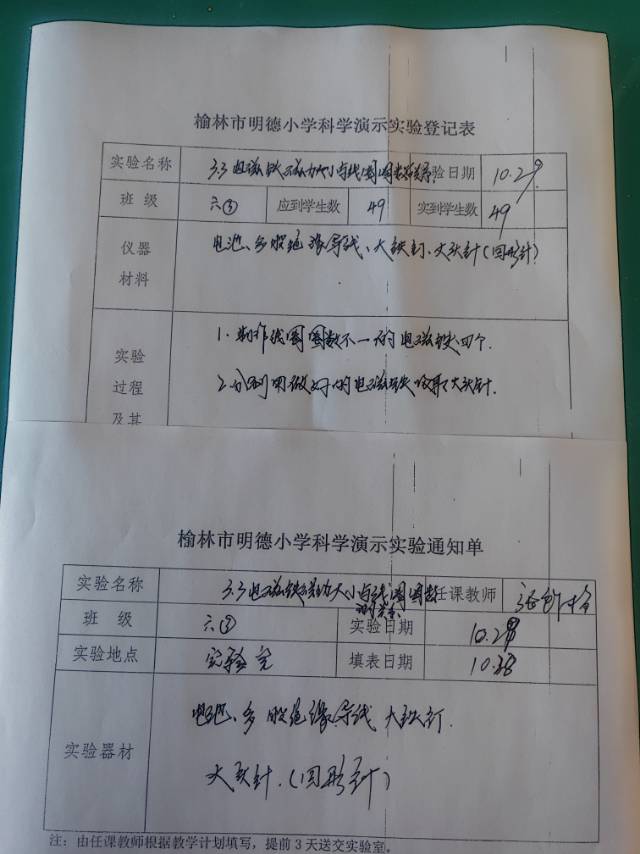 榆林市明德小学科学演示实验登记表
实验名称 3.3电磁铁磁力大小与线圈圈数 验日期 10.29
班 级 六③ 应到学生数 49 实到学生数 49
仪器材料 电池、多股绝缘导线、大铁钉、大头针(回形针)
实验过程及其
1.制作线圈圈数不一的电磁铁四个.
2.分别用做好的电磁铁吸取大头针.
榆林市明德小学科学演示实验通知单
实验名称 3.3电磁铁磁力大小与线圈圈数 任课教师
班 级 六③ 实验日期
实验地点 实验室 填表日期
实验器材 电池、多股绝缘导线 大铁钉.
大头针.(回形针)
注：由任课教师根据教学计划填写，提前3天送交实验室。